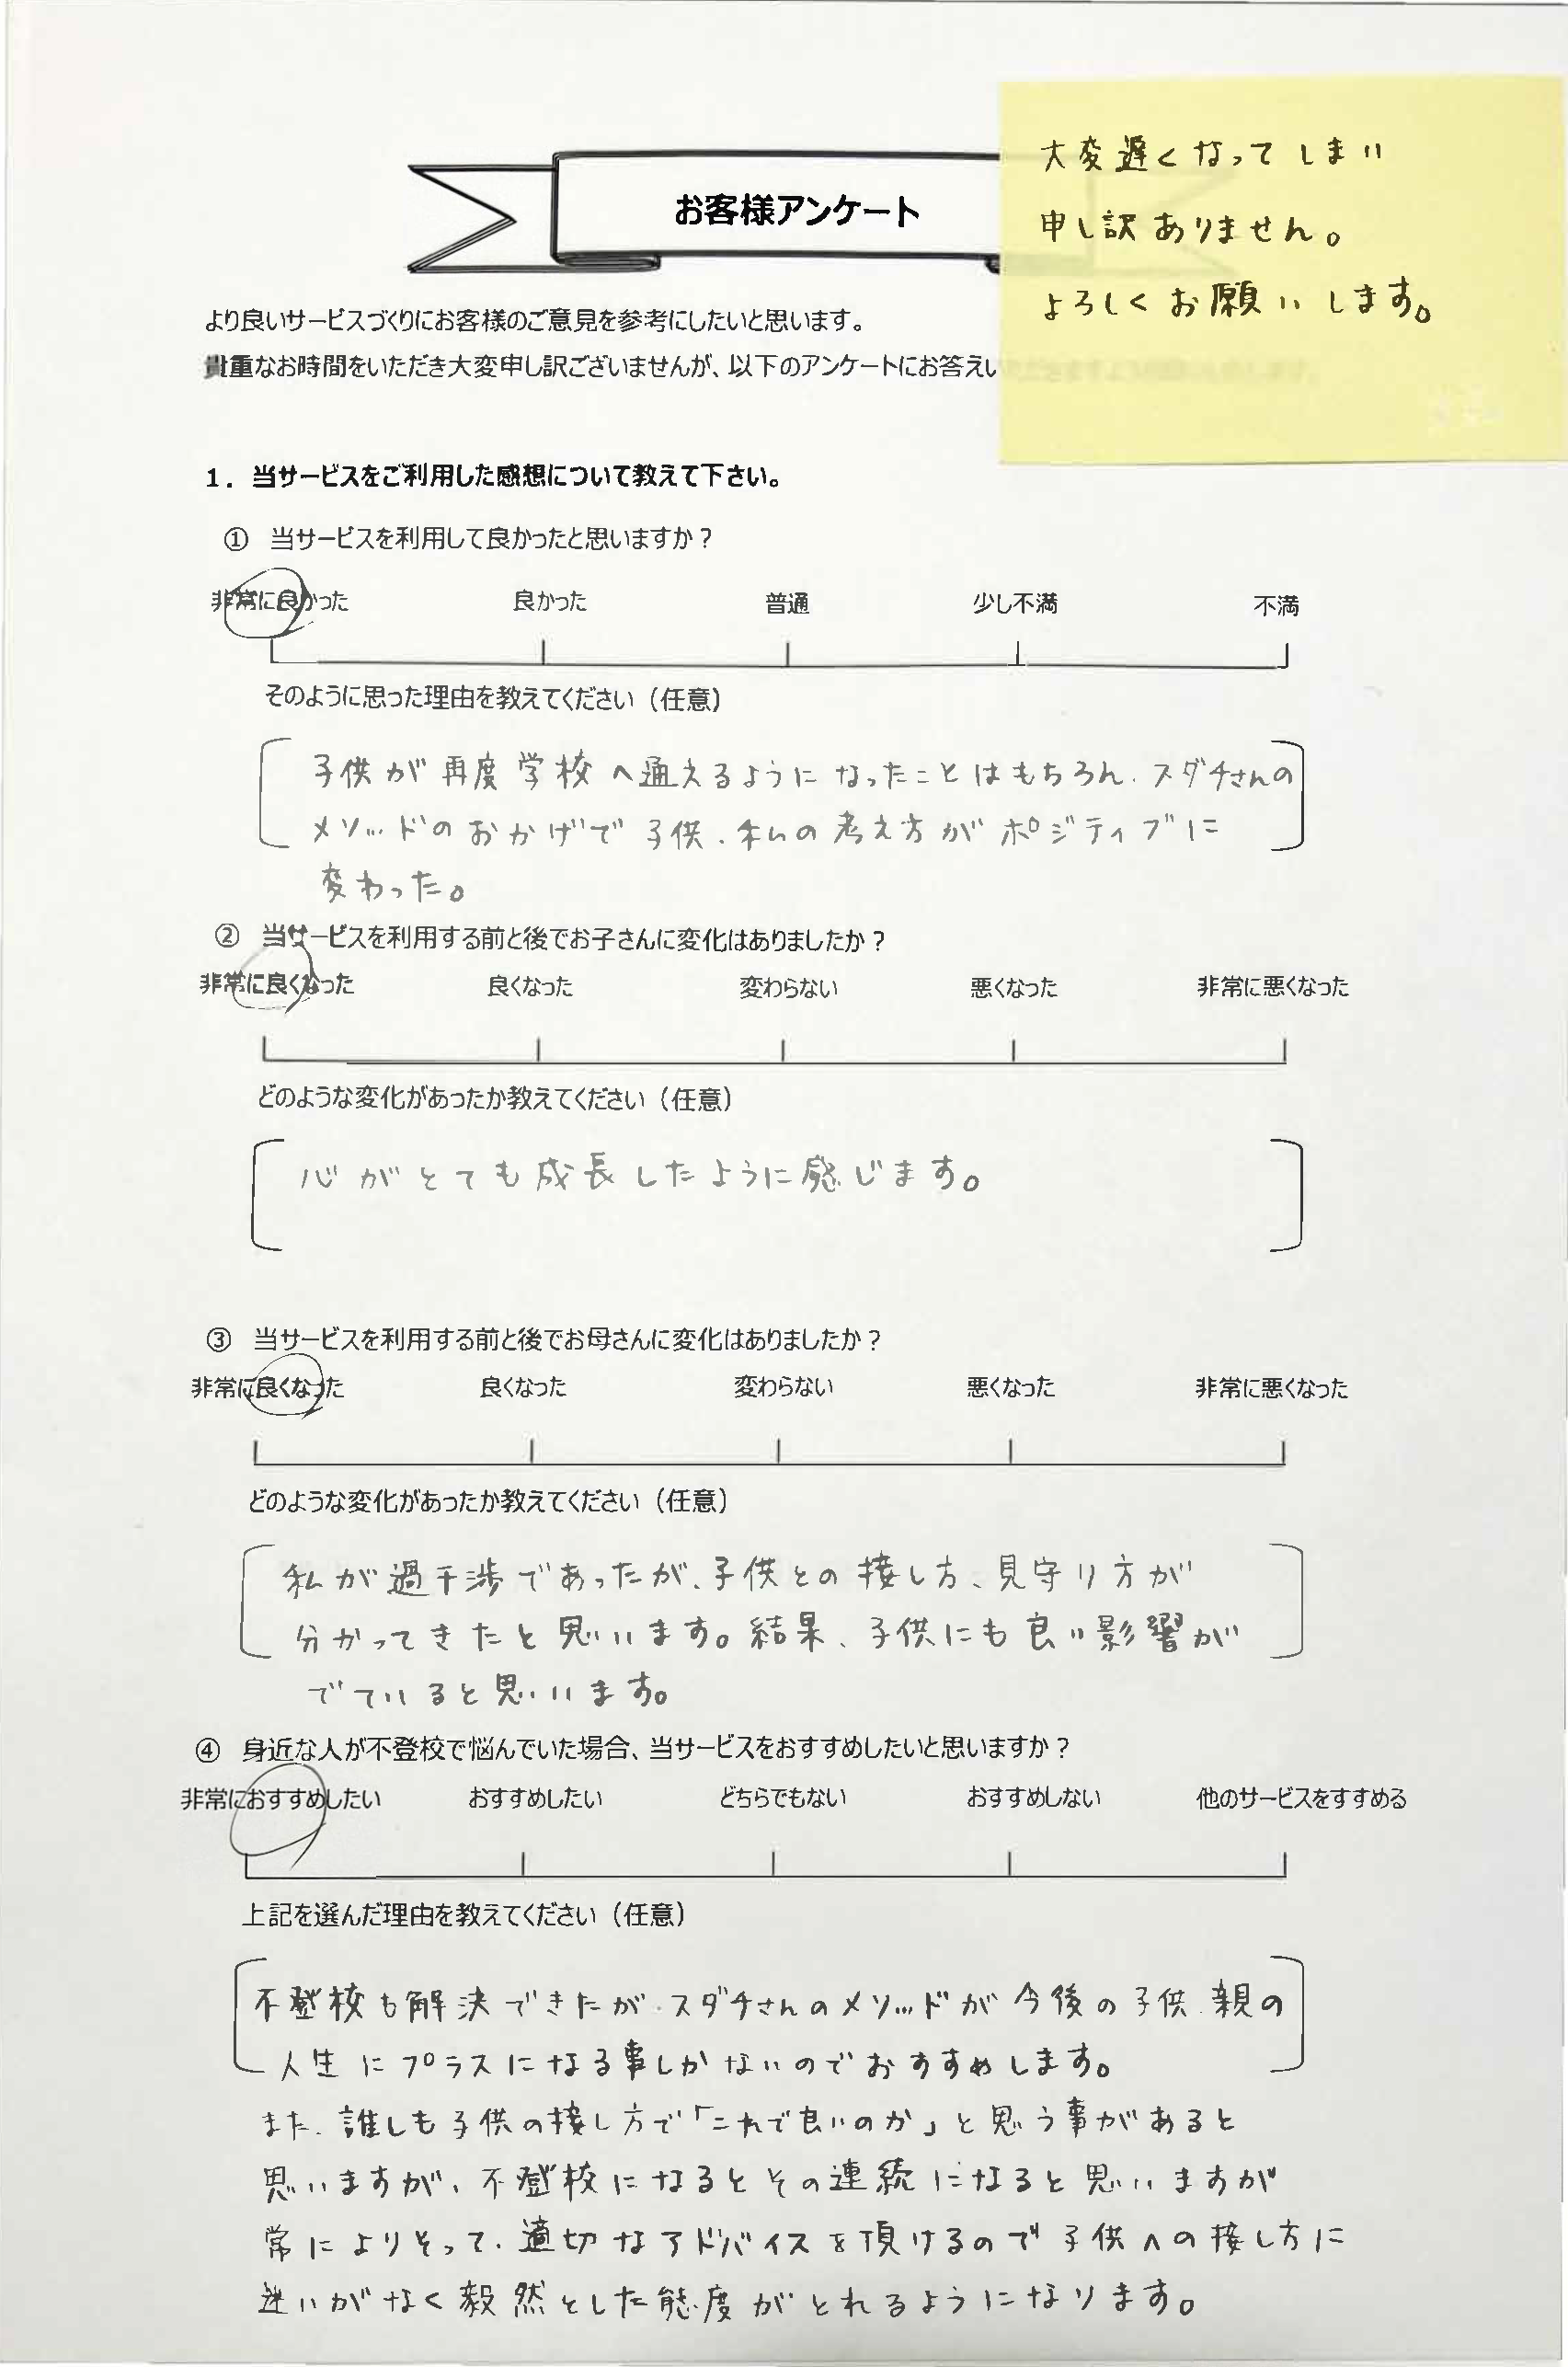 お客様アンケート
大変遅くなってしまい
申し訳ありません。
よろしくお願いします。
より良いサービスづくりにお客様のご意見を参考にしたいと思います。
貴重なお時間をいただき大変申し訳ございませんが、以下のアンケートにお答えい
1. 当サービスをご利用した感想について教えて下さい。
① 当サービスを利用して良かったと思いますか?
非常に良かった 良かった 普通 少し不満 不満
そのように思った理由を教えてください(任意)
子供が再度学校へ通えるようになったことはもちろん、スダチさんの
メソッドのおかげで子供、私の考え方がポジティブに
変わった。
② 当サービスを利用する前と後でお子さんに変化はありましたか?
非常に良くなった 良くなった 変わらない 悪くなった 非常に悪くなった
どのような変化があったか教えてください(任意)
心がとても成長したように感じます。
③ 当サービスを利用する前と後でお母さんに変化はありましたか?
非常に良くなった 良くなった 変わらない 悪くなった 非常に悪くなった
どのような変化があったか教えてください(任意)
私が過干渉であったが、子供との接し方、見守り方が
分かってきたと思います。結果、子供にも良い影響が
でていると思います。
④ 身近な人が不登校で悩んでいた場合、当サービスをおすすめしたいと思いますか?
非常におすすめしたい おすすめしたい どちらでもない おすすめしない 他のサービスをすすめる
上記を選んだ理由を教えてください(任意)
不登校も解決できたが、スダチさんのメソッドが今後の子供、親の
人生にプラスになる事しかないのでおすすめします。
また、誰しも子供の接し方で「これで良いのか」と思う事があると
思いますが、不登校になるとその連続になると思いますが
常によりそって、適切なアドバイスを頂けるので子供への接し方に
迷いがなく毅然とした態度がとれるようになります。